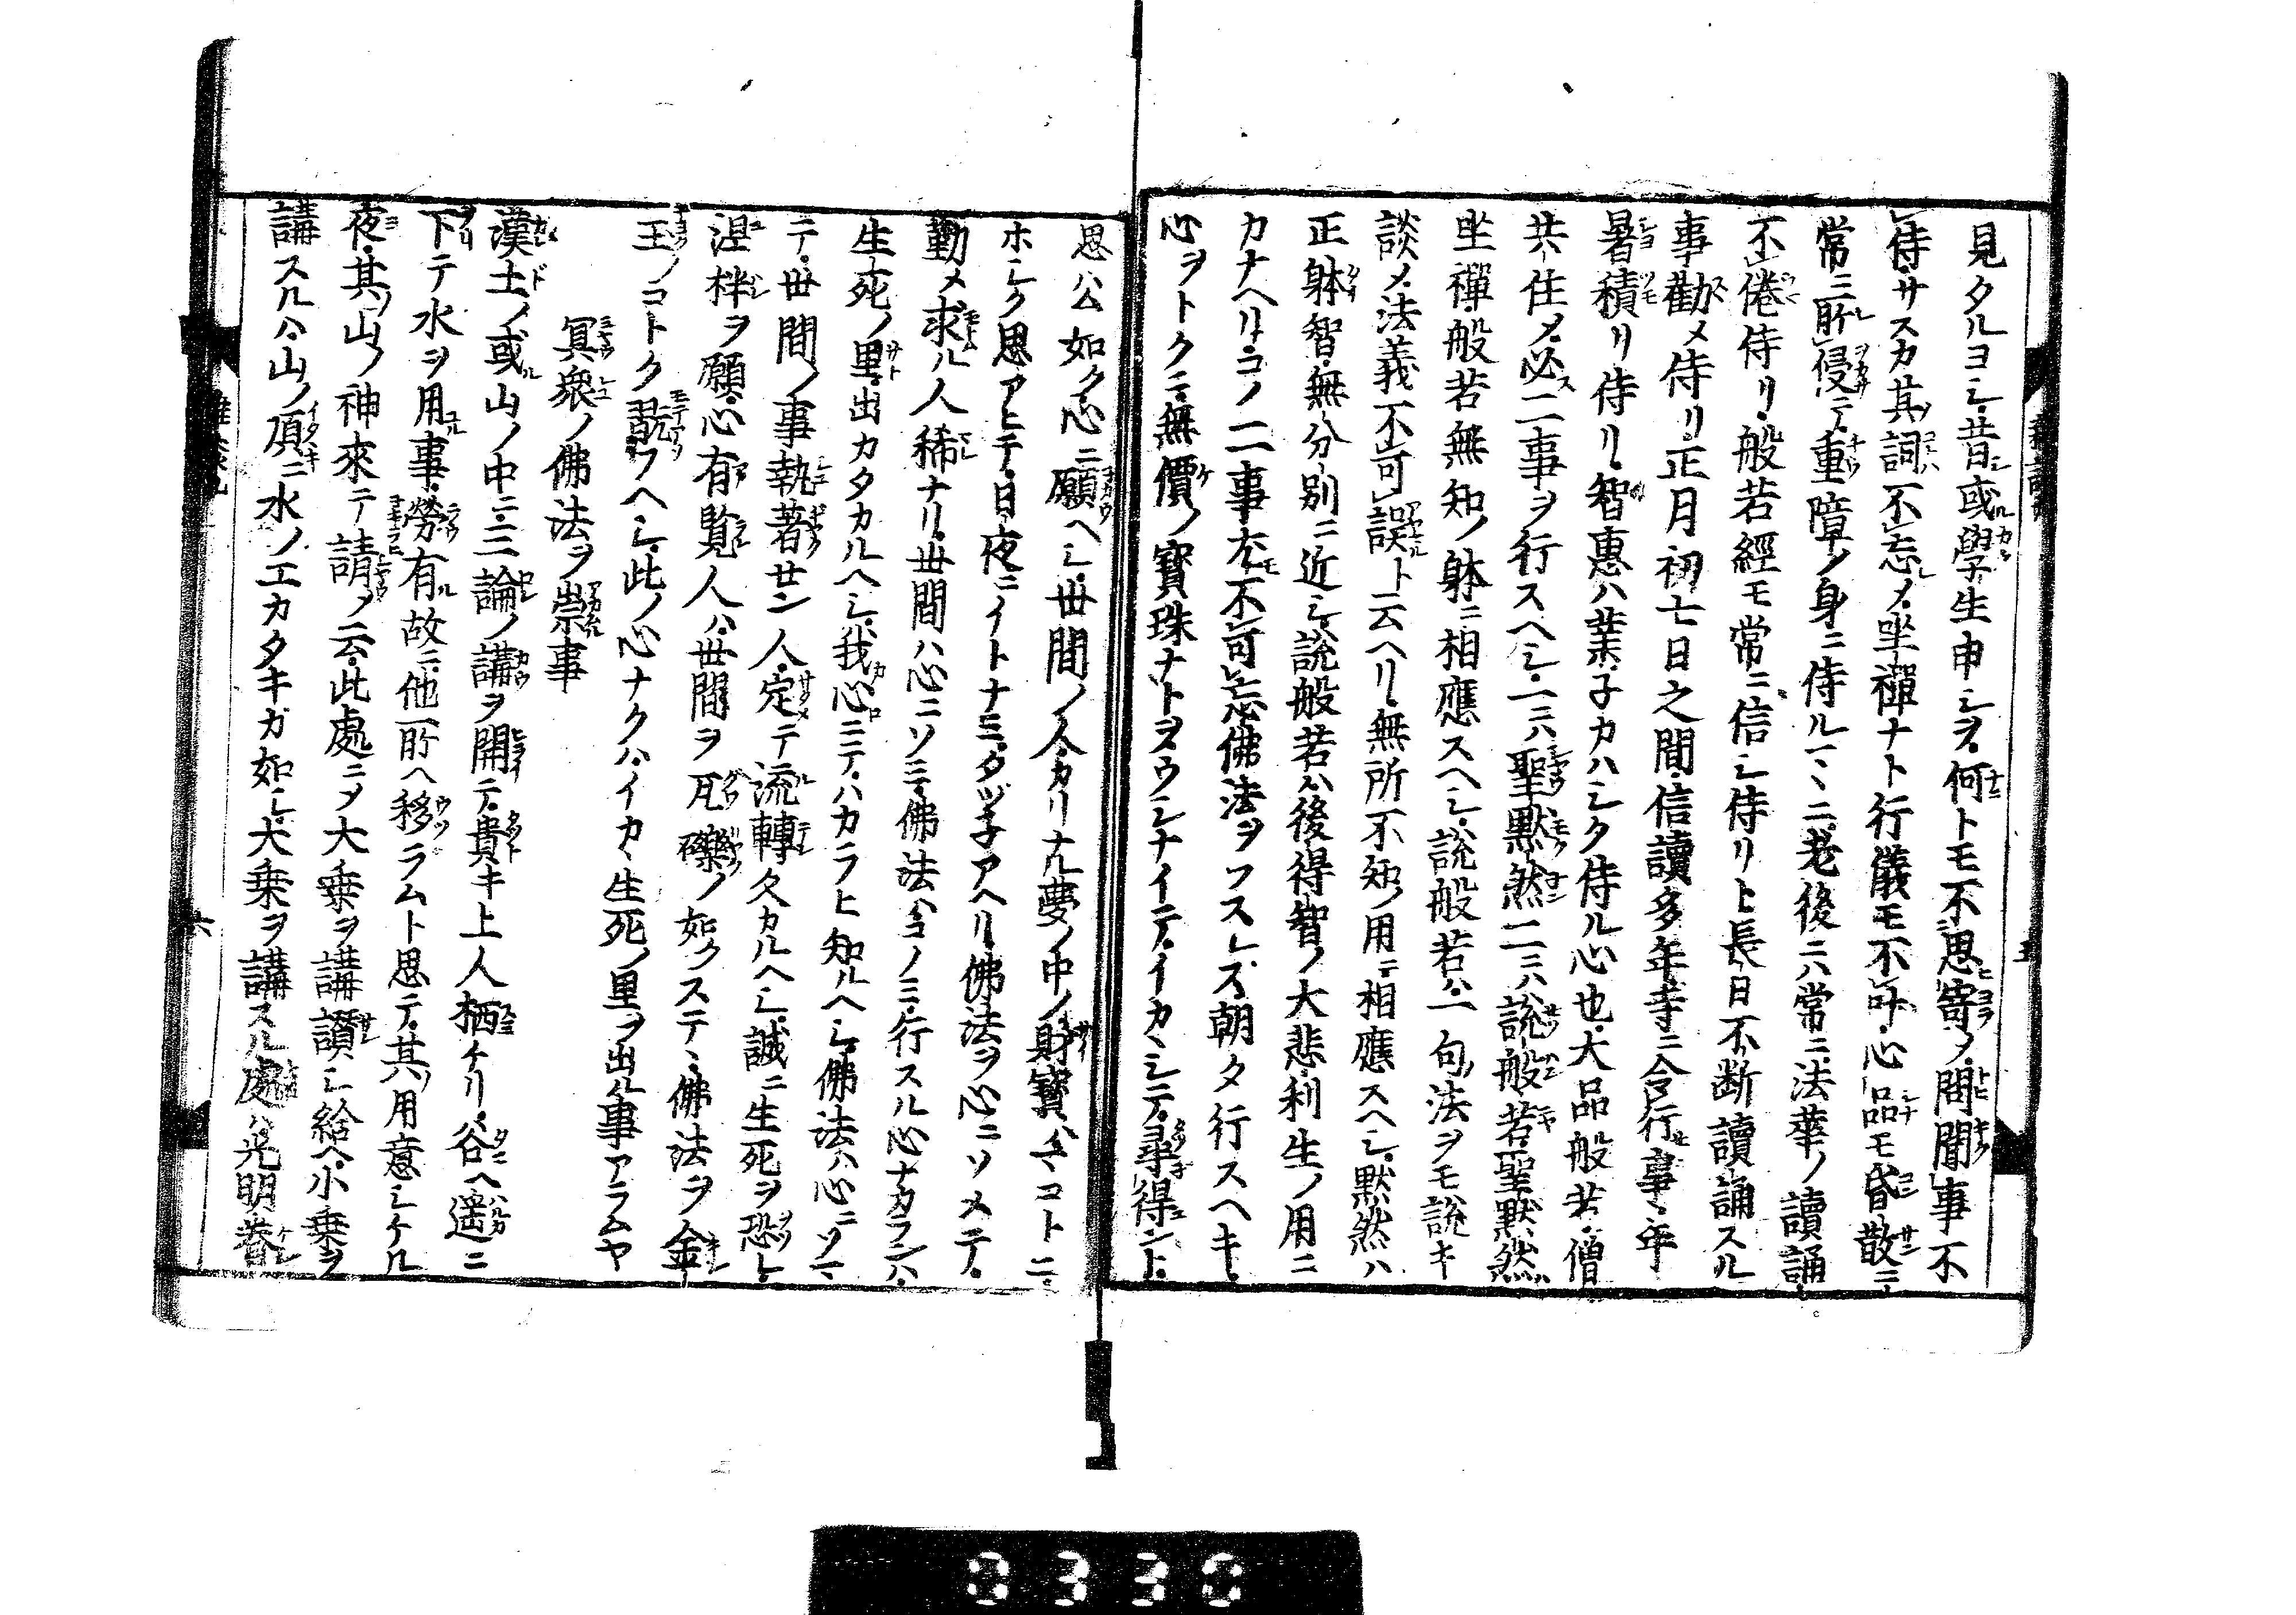 見タルヨシ昔或學生申シヲ何トモ不思寄ノ問聞事不
侍サスカ其詞不忘メ坐禪ナト行儀モ不叶心品モ昏散ニ
常ニ所侵テ重障ノ身ニ侍ルマヽニ老後ニハ常ニ法華ノ讀誦
不倦侍リ般若經モ常ニ信シ侍リト長日不断讀誦スル
事勸メ侍リ正月初七日之間信讀多年寺ニ令行事年
暑積リ侍リ智惠ハ業子カハシク侍ル心也大品般若僧
共住メ必二事ヲ行スヘシ一ニハ聖黙然二ニハ説般若聖黙然
坐禪般若無知ノ躰ニ相應スヘシ説般若ハ一句法ヲモ説キ
談メ法義不可誤ト云ヘリ無所不知ノ用ニ相應スヘシ黙然ハ
正躰智無分別ニ近シ説般若ハ後得智ノ大悲利生ノ用ニ
カナヘリコノ二事尤不可忘佛法ヲワスレズ朝タ行スヘキ
心ヲトクニ無價ノ寶珠ナトヲウシナイテイカヽシテ尋得ント
思ハム如ク心ニ願ヘシ世間ノ人カリナル夢ノ中ノ財寶ハマコトニ
ホシク思アヒテ日夜ニイトナミタツ子アヘリ佛法ヲ心ニソメテ
勤メ求ル人稀ナリ世間ハ心ニソミテ佛法ハコノミ行スル心ナカランハ
生死ノ里出カタカルヘシ我心ニテハカラヒ知ルヘシ佛法ハ心ニソマ
テ世間ノ事執著せン人定テ流轉久カルヘシ誠ニ生死ヲ恐レ
涅槃ヲ願心有覧人ハ世間ヲ瓦礫ノ如クステヽ佛法ヲ金
玉ノコトク翫フヘシ此ノ心ナクハイカヽ生死ノ里ヲ出ル事アラムヤ
冥衆ノ佛法ヲ崇事
漢土ノ或山ノ中ニ三論ノ講ヲ開テ貴キ上人栖ケリ谷ヘ遥ニ
下テ水ヲ用事勞有故ニ他所ヘ移ラムト思テ其用意シケル
夜其山ノ神來テ請メ云此處ニメ大乗ヲ講讃シ給ヘ小乗ヲ
講スルハ山ノ頂ニ水ノエカタキガ如シ大乗ヲ講スル處ハ光明巻
雜談
五
六
0330